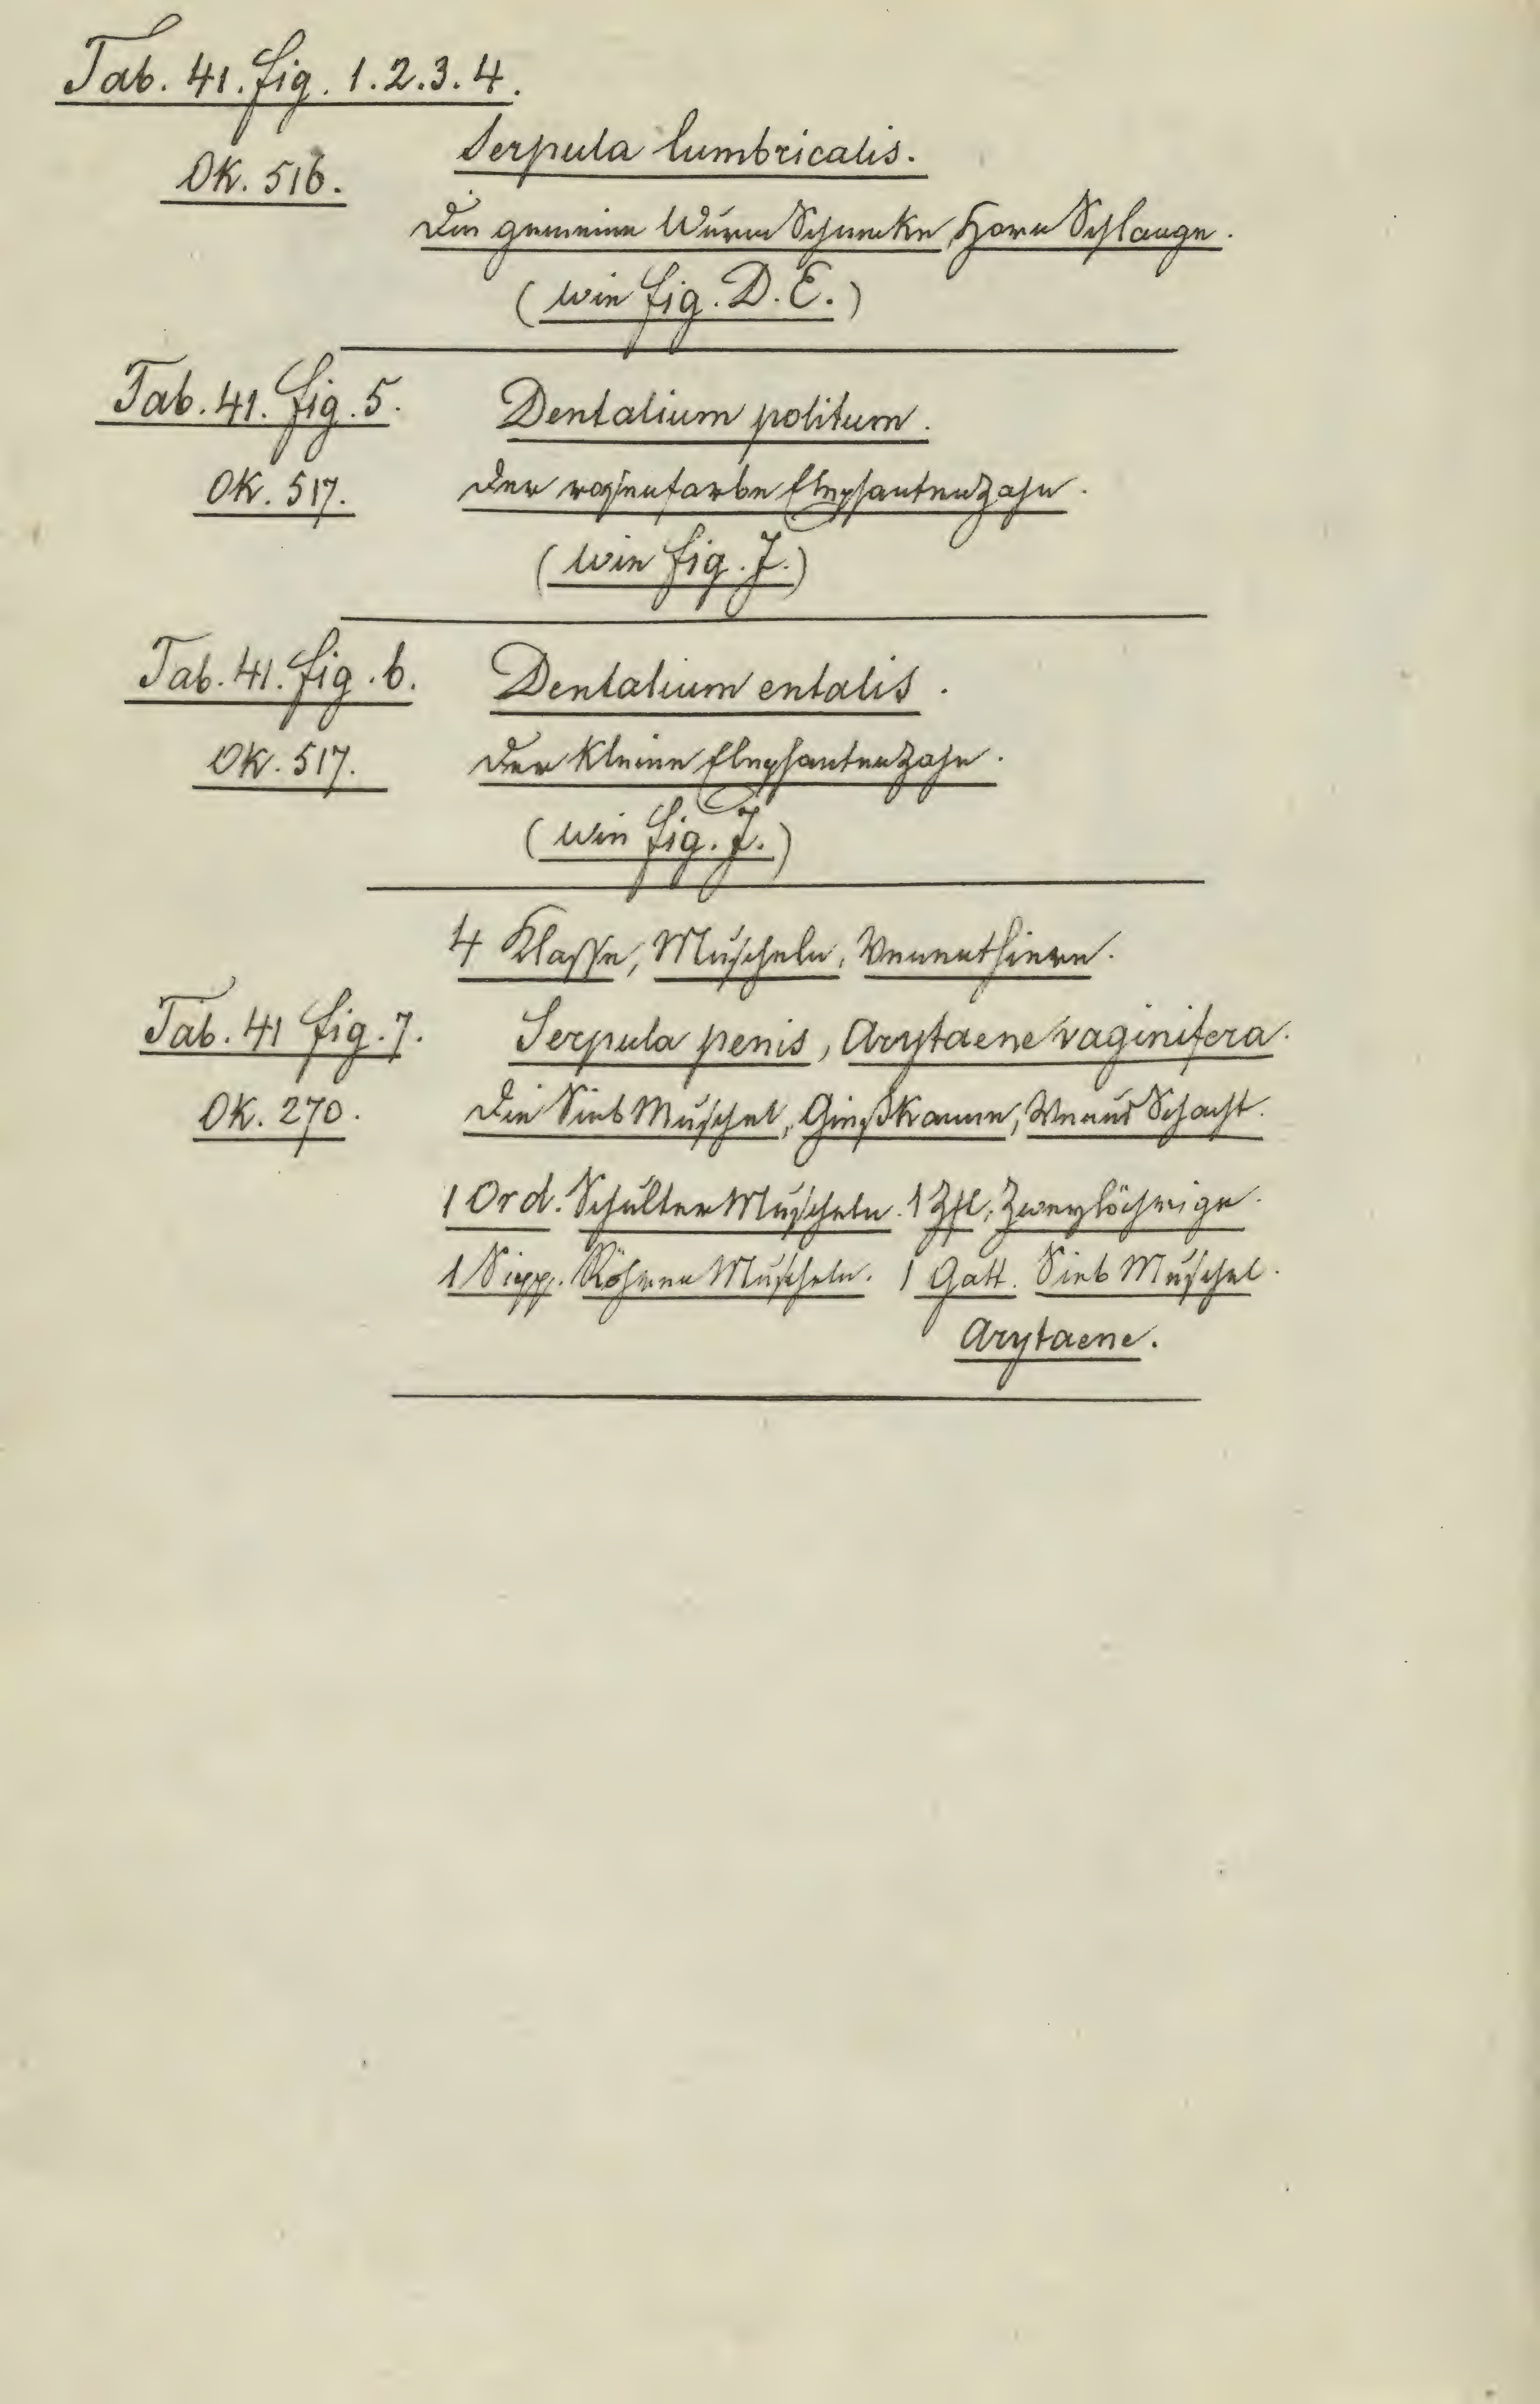 Tab. 41. fig. 1. 2. 3. 4.
Serpula lumbricalis.
OK. 516.
Die gemeine Wurm Schnecke, Horn Schlange.
(wie fig. D. E.)
Tab. 41. fig. 5. Dentalium politum.
OK. 517. Der rosenfarbe Elephantenzahn.
(wie fig. J.)
Tab. 41. fig. 6. Dentalium entalis.
OK. 517. Der kleine Elephantenzahn.
(wie fig. J.)
4 Klasse, Muscheln, Venenthiere.
Tab. 41 fig. 7. Serpula penis, Arytaene vaginifera.
OK. 270. Die Sieb Muschel, Gießkanne, Venus Schacht.
1 Ord. Schulter Muscheln. 1 Zft. Zweylöchrige.
1 Sipp. Röhren Muscheln. 1 Gatt. Sieb Muschel.
Arytaene.